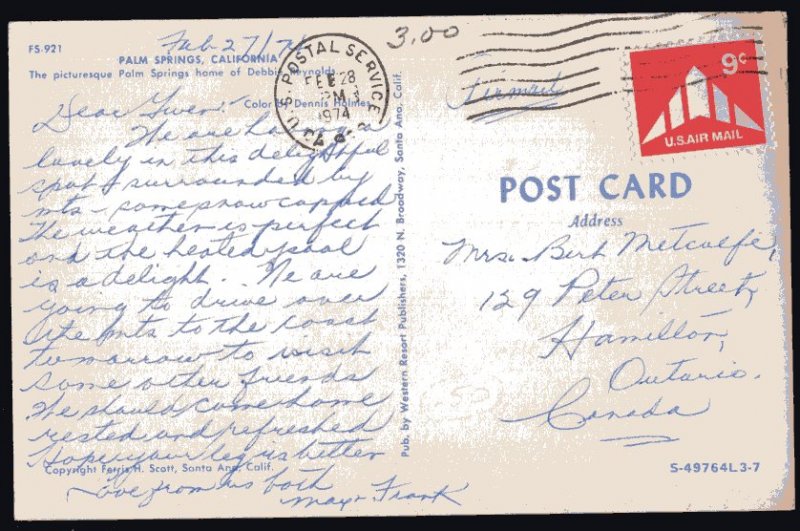 Feb 27/74
3.00
FS-921
PALM SPRINGS, CALIFORNIA
The picturesque Palm Springs home of Debbie Reynolds
Color by Dennis Holmes
U.S. POSTAL SERVICE
FEB 28
PM
1974
9c
U.S. AIR MAIL
Airmail
Dear Gwen:
We are having a
lovely in this delightful
spot surrounded by
mts - some snow capped
The weather is perfect
and the heated pool
is a delight. We are
going to drive over
the mts to the coast
tomorrow to visit
some other friends
We should come home
rested and refreshed
Hope your leg is better
Love from us both
Frank
Copyright Ferris H. Scott, Santa Ana, Calif.
Pub. by Western Resort Publishers, 1320 N. Broadway, Santa Ana, Calif.
POST CARD
Address
Mrs. Bert Metcalfe,
129 Peter Street,
Hamilton,
Ontario.
Canada
S-49764L3-7